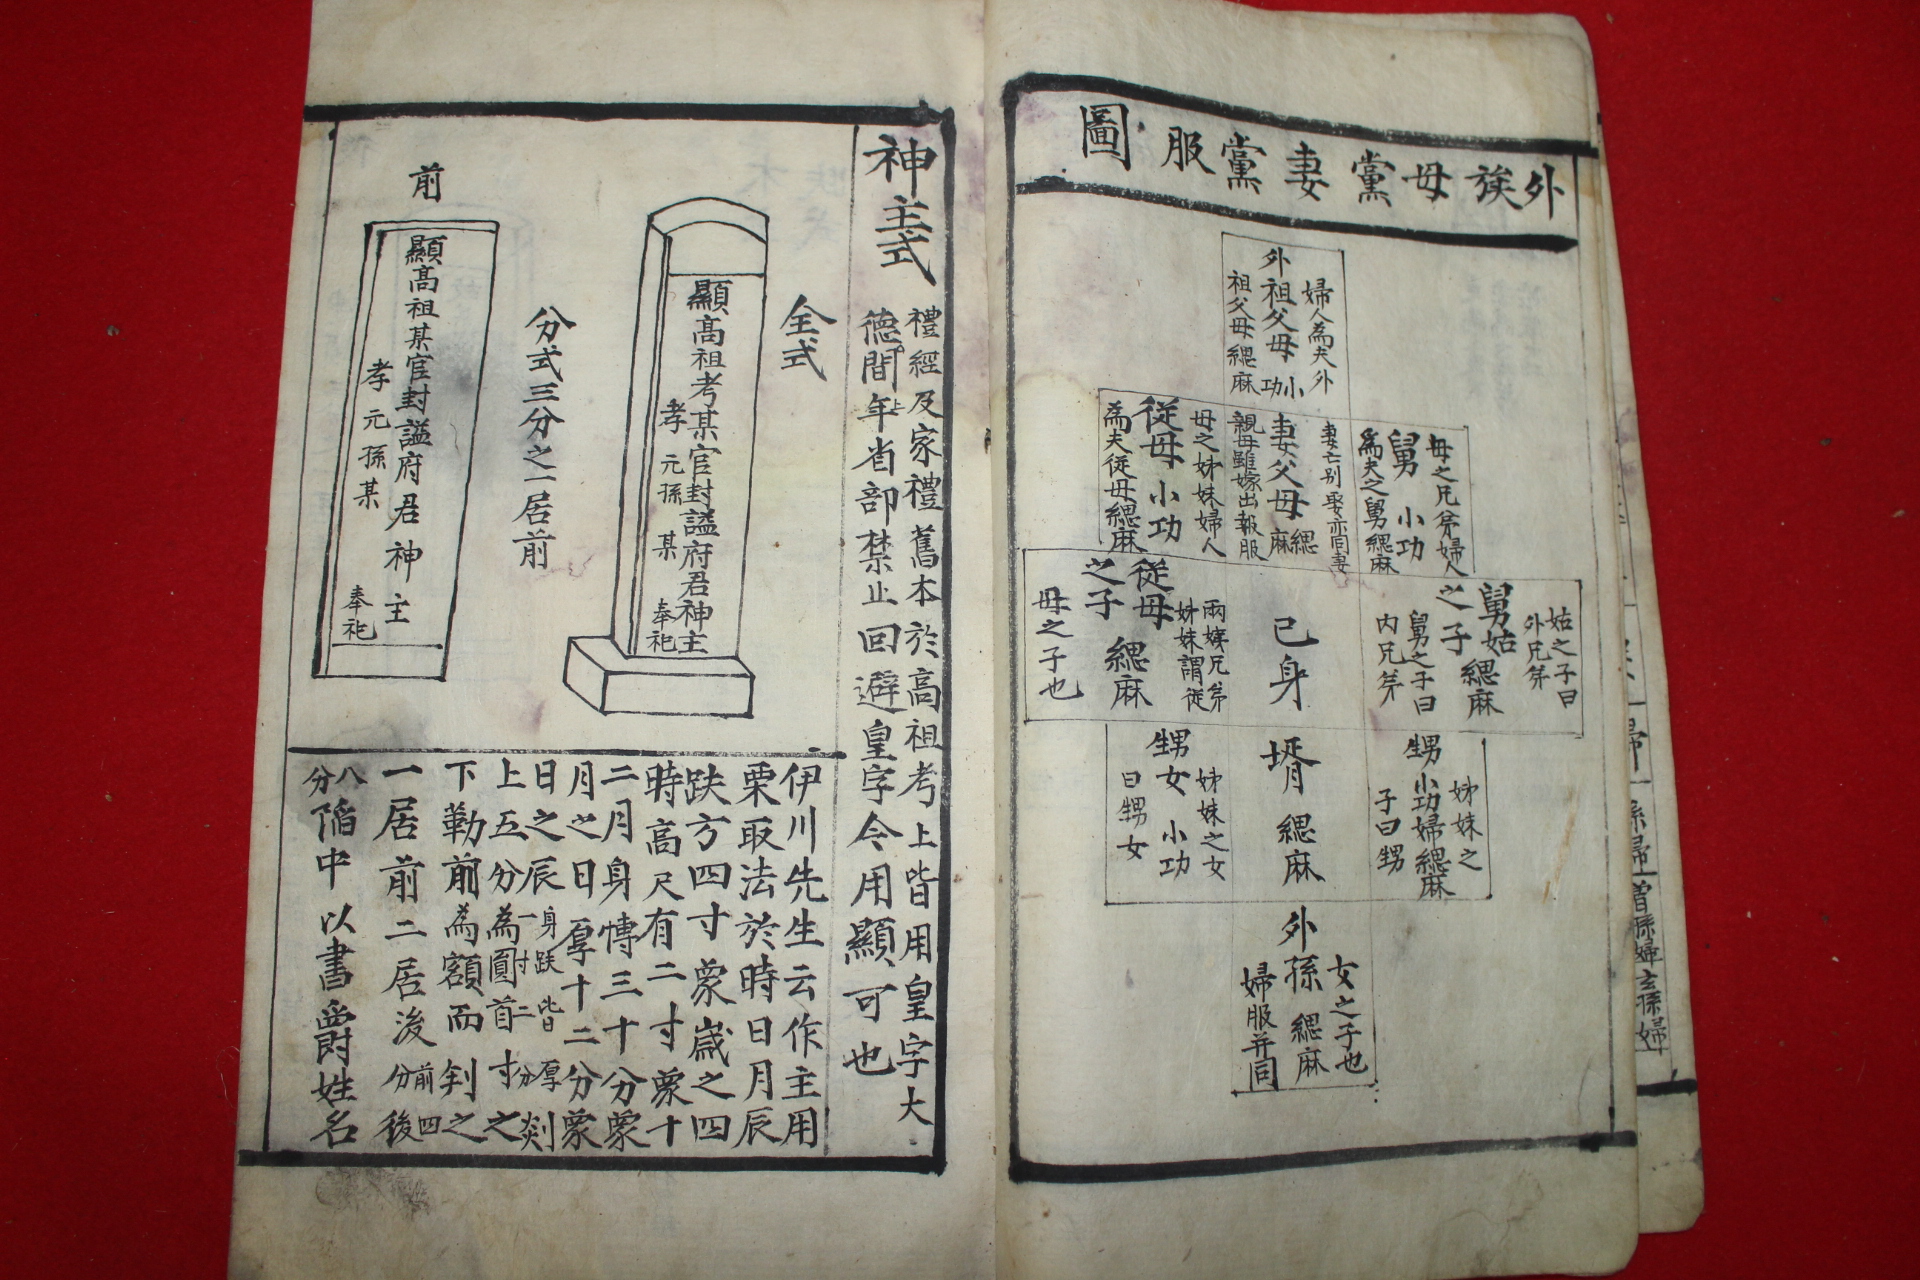 外族母黨妻黨服圖
婦人為夫外
外祖父母小功
祖父母緦麻
母之兄弟婦人
舅小功
為夫之舅緦麻
妻亡別娶亦同妻
妻父母緦麻
親母雖嫁出報服
母之姊妹婦人
從母小功
為夫從母緦麻
姑之子曰
外兄弟
舅姑之子緦麻
舅之子曰
內兄弟
己身
兩姨兄弟
姊妹謂從
從母之子緦麻
母之子也
姊妹之
甥小功婦緦麻
子曰甥
壻緦麻
姊妹之女
甥女小功
曰甥女
女之子也
外孫緦麻
婦服并同
神主式
禮經及家禮舊本於高祖考上皆用皇字大
德間年省部禁止回避皇字今用顯可也
全式
顯高祖考某官封謚府君神主
孝元孫某奉祀
分式三分之一居前
前
顯高祖某官封謚府君神主
孝元孫某奉祀
伊川先生云作主用
栗取法於時日月辰
趺方四寸象歲之四
時高尺有二寸象十
二月身博三十分象
月之日厚十二分象
日之辰身趺皆厚一寸二分剡
上五分為圓首寸之
下勒前為額而判之
一居前二居後前四分後
八分陷中以書爵姓名
孫婦
曾孫婦
玄孫婦